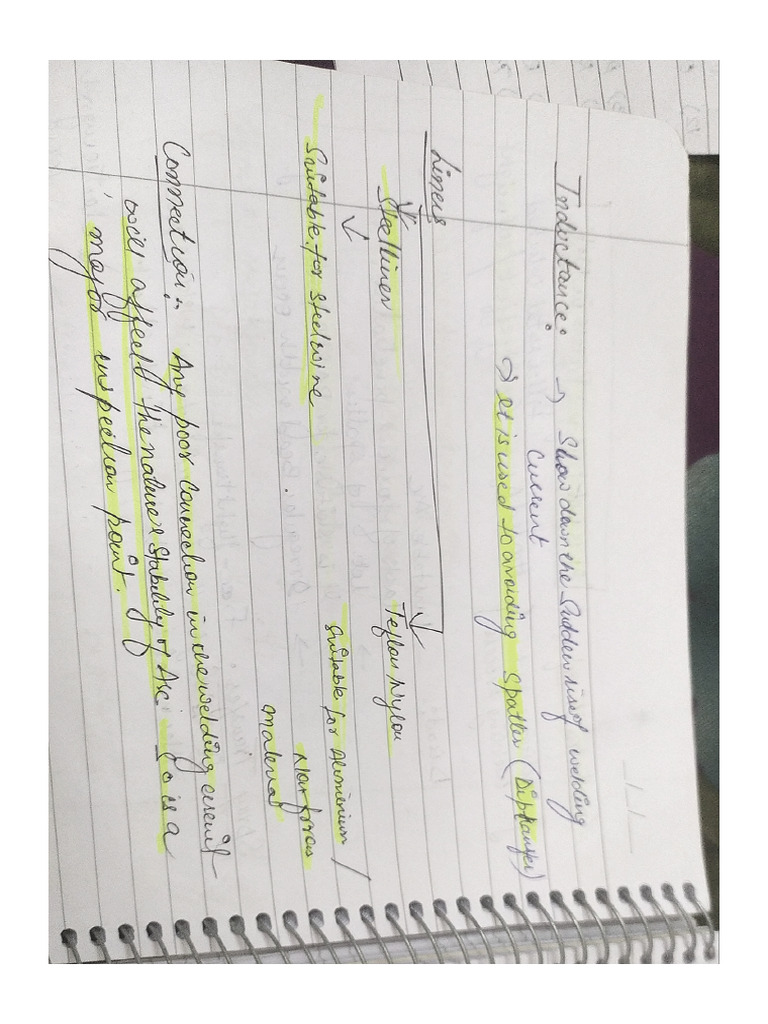 Inductance: → Show down the Sudden rise of welding
Current
→ It is used to avoiding Spatter (Dip transfer)
Liners
Steel liner
Teflon Nylon
Suitable for steel wire
Suitable for Aluminium /
Non ferrous
material
Connection: Any poor connection in the welding circuit
will affect the nature & stability of Arc is a
major inspection point.